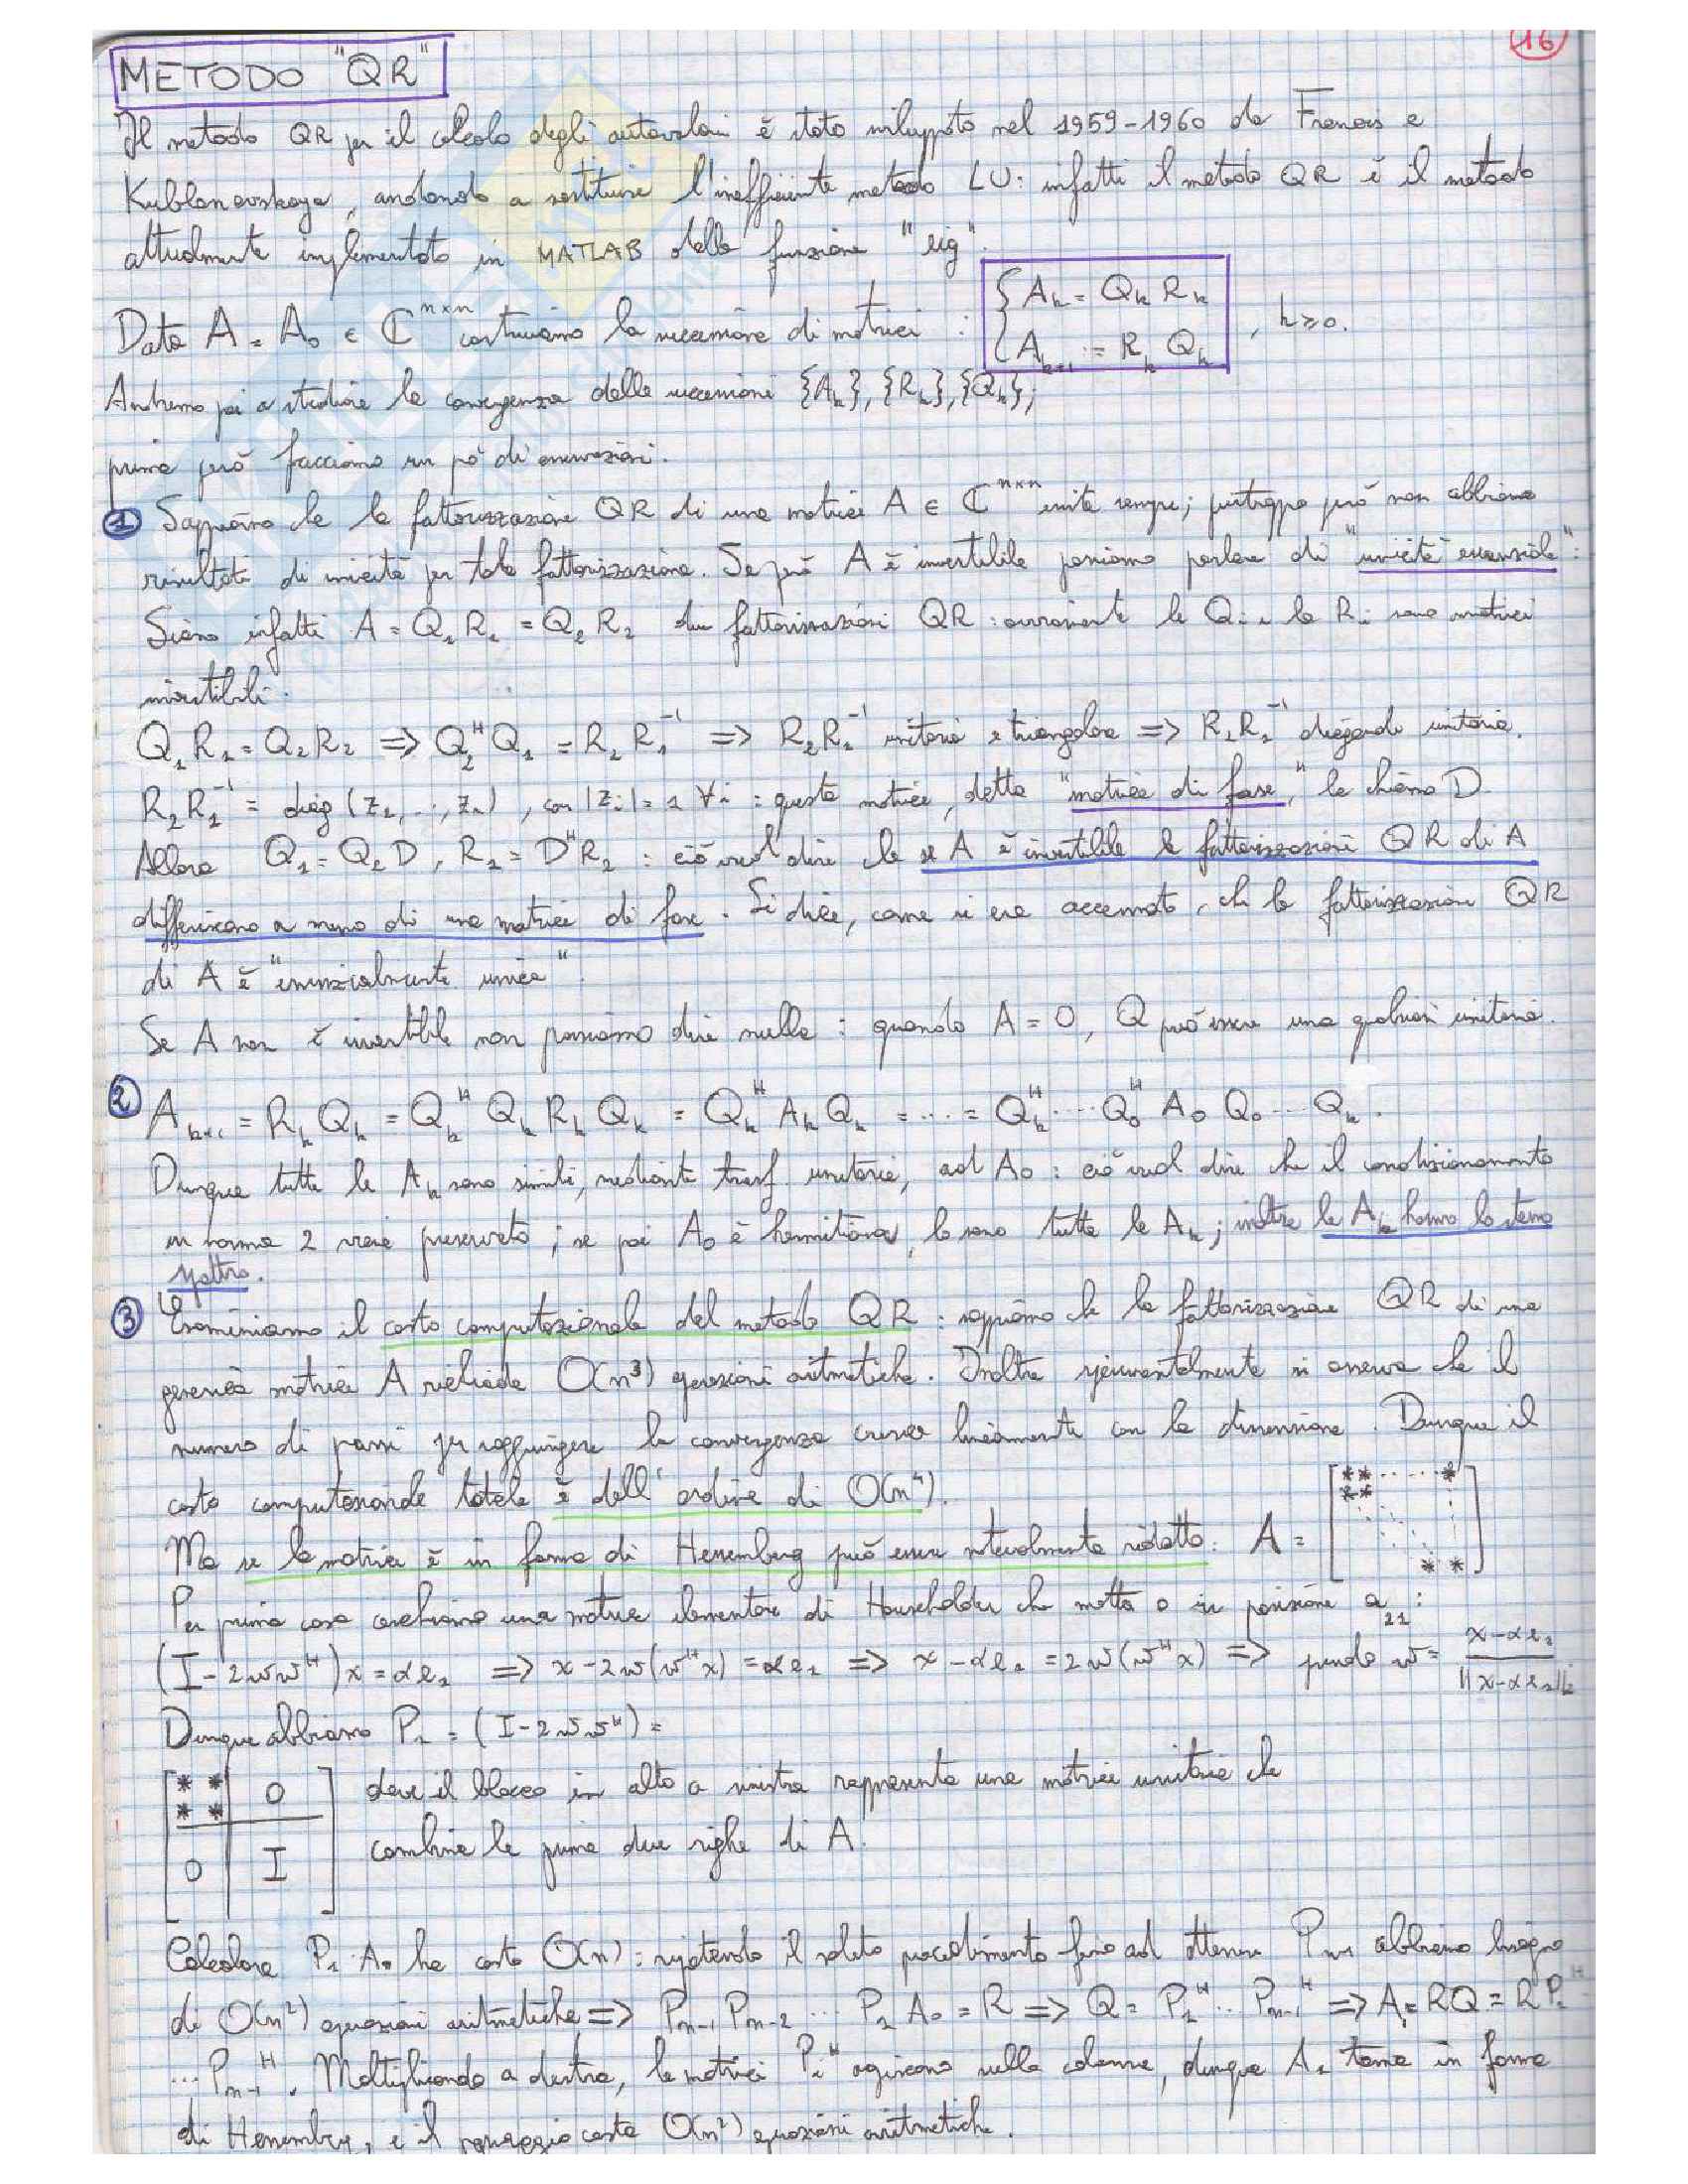 16
METODO "QR"
Il metodo QR per il calcolo degli autovalori è stato sviluppato nel 1959-1960 da Francis e
Kublanovskaya, andando a sostituire l'inefficiente metodo LU: infatti il metodo QR è il metodo
attualmente implementato in MATLAB dalla funzione "eig".
Data A = A₀ ∈ ℂⁿˣⁿ costruiamo la successione di matrici : { Aₖ = Qₖ Rₖ , k≥0.
Aₖ₊₁ := Rₖ Qₖ
Andremo poi a studiare la convergenza delle successioni {Aₖ}, {Rₖ}, {Qₖ};
prima però facciamo un pò di osservazioni.
① Sappiamo che la fattorizzazione QR di una matrice A ∈ ℂⁿˣⁿ esiste sempre; purtroppo però non abbiamo
risultati di unicità per tale fattorizzazione. Se però A è invertibile possiamo parlare di "unicità essenziale":
Siano infatti A = Q₁R₁ = Q₂R₂ due fattorizzazioni QR: ovviamente le Qᵢ e le Rᵢ sono matrici
invertibili.
Q₁R₁ = Q₂R₂ => Q₂ᴴQ₁ = R₂R₁⁻¹ => R₂R₁⁻¹ unitaria e triangolare => R₂R₁⁻¹ diagonale unitaria.
R₂R₁⁻¹ = diag (z₁,..,zₙ), con |zᵢ| = 1 ∀i : questa matrice, detta "matrice di fase", la chiamo D.
Allora Q₁ = Q₂D, R₁ = DᴴR₂ : ciò vuol dire che se A è invertibile le fattorizzazioni QR di A
differiscono a meno di una matrice di fase. Si dice, come si era accennato, che la fattorizzazione QR
di A è "essenzialmente unica".
Se A non è invertibile non possiamo dire nulla : quando A = 0, Q può essere una qualsiasi unitaria.
② Aₖ₊₁ = Rₖ Qₖ = Qₖᴴ Qₖ Rₖ Qₖ = Qₖᴴ Aₖ Qₖ = ... = Qₖᴴ ... Q₀ᴴ A₀ Q₀ ... Qₖ.
Dunque tutte le Aₖ sono simili, mediante trasf. unitarie, ad A₀ : ciò vuol dire che il condizionamento
in norma 2 viene preservato ; se poi A₀ è hermitiana, lo sono tutte le Aₖ ; inoltre le Aₖ hanno lo stesso
spettro.
③ Esaminiamo il costo computazionale del metodo QR : sappiamo che la fattorizzazione QR di una
generica matrice A richiede O(n³) operazioni aritmetiche. Inoltre sperimentalmente si osserva che il
numero di passi per raggiungere la convergenza cresce linearmente con la dimensione. Dunque il
costo computazionale totale è dell'ordine di O(n⁴).
Ma se la matrice è in forma di Hessemberg può essere notevolmente ridotto: A = [ * * ... *
* *
* * ]
Per prima cosa cerchiamo una matrice elementare di Householder che metta 0 in posizione a₂₁ :
(I-2wwᴴ)x = αe₁ => x-2w(wᴴx) = αe₁ => x-αe₁ = 2w(wᴴx) => prendo w = x-αe₁ / ‖x-αe₁‖₂
Dunque abbiamo P₁ = (I-2wwᴴ) =
[ * * | 0
* * |
0 | I ] dove il blocco in alto a sinistra rappresenta una matrice unitaria che
combina le prime due righe di A.
Calcolare P₁ A₀ ha costo O(n) : ripetendo il solito procedimento fino ad ottenere Pₙ₋₁ abbiamo bisogno
di O(n²) operazioni aritmetiche => Pₙ₋₁ Pₙ₋₂ ... P₁ A₀ = R => Q = P₁ᴴ ... Pₙ₋₁ᴴ => A₁ = RQ = RP₁ᴴ
... Pₙ₋₁ᴴ. Moltiplicando a destra, le matrici Pᵢᴴ agiscono sulle colonne, dunque A₁ torna in forma
di Hessemberg, e il passaggio costa O(n²) operazioni aritmetiche.